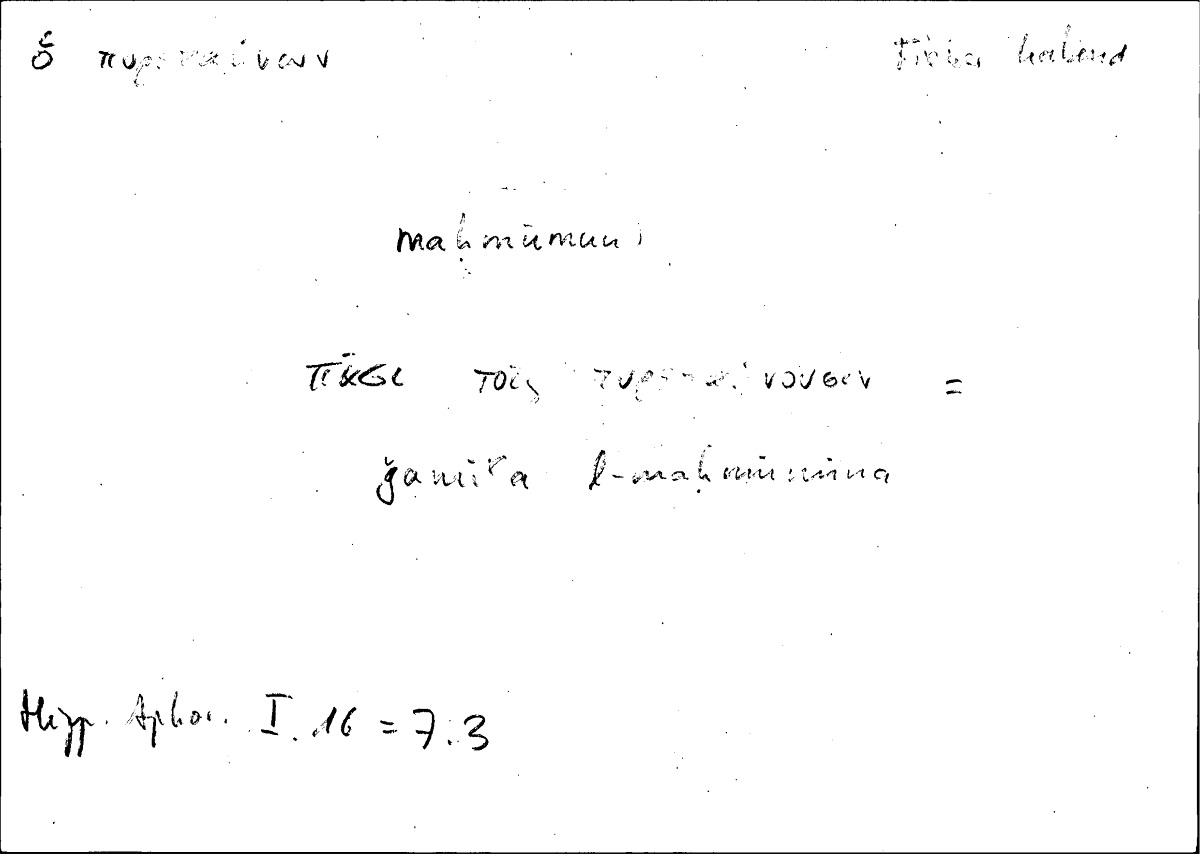 ὁ πυρεταίνων Fieber habend
maḥmūmun
πᾶσι τοῖς πυρεταίνουσιν =
ǧamīʿa l-maḥmūmīna
Hipp. Aphor. I. 16 = 7.3